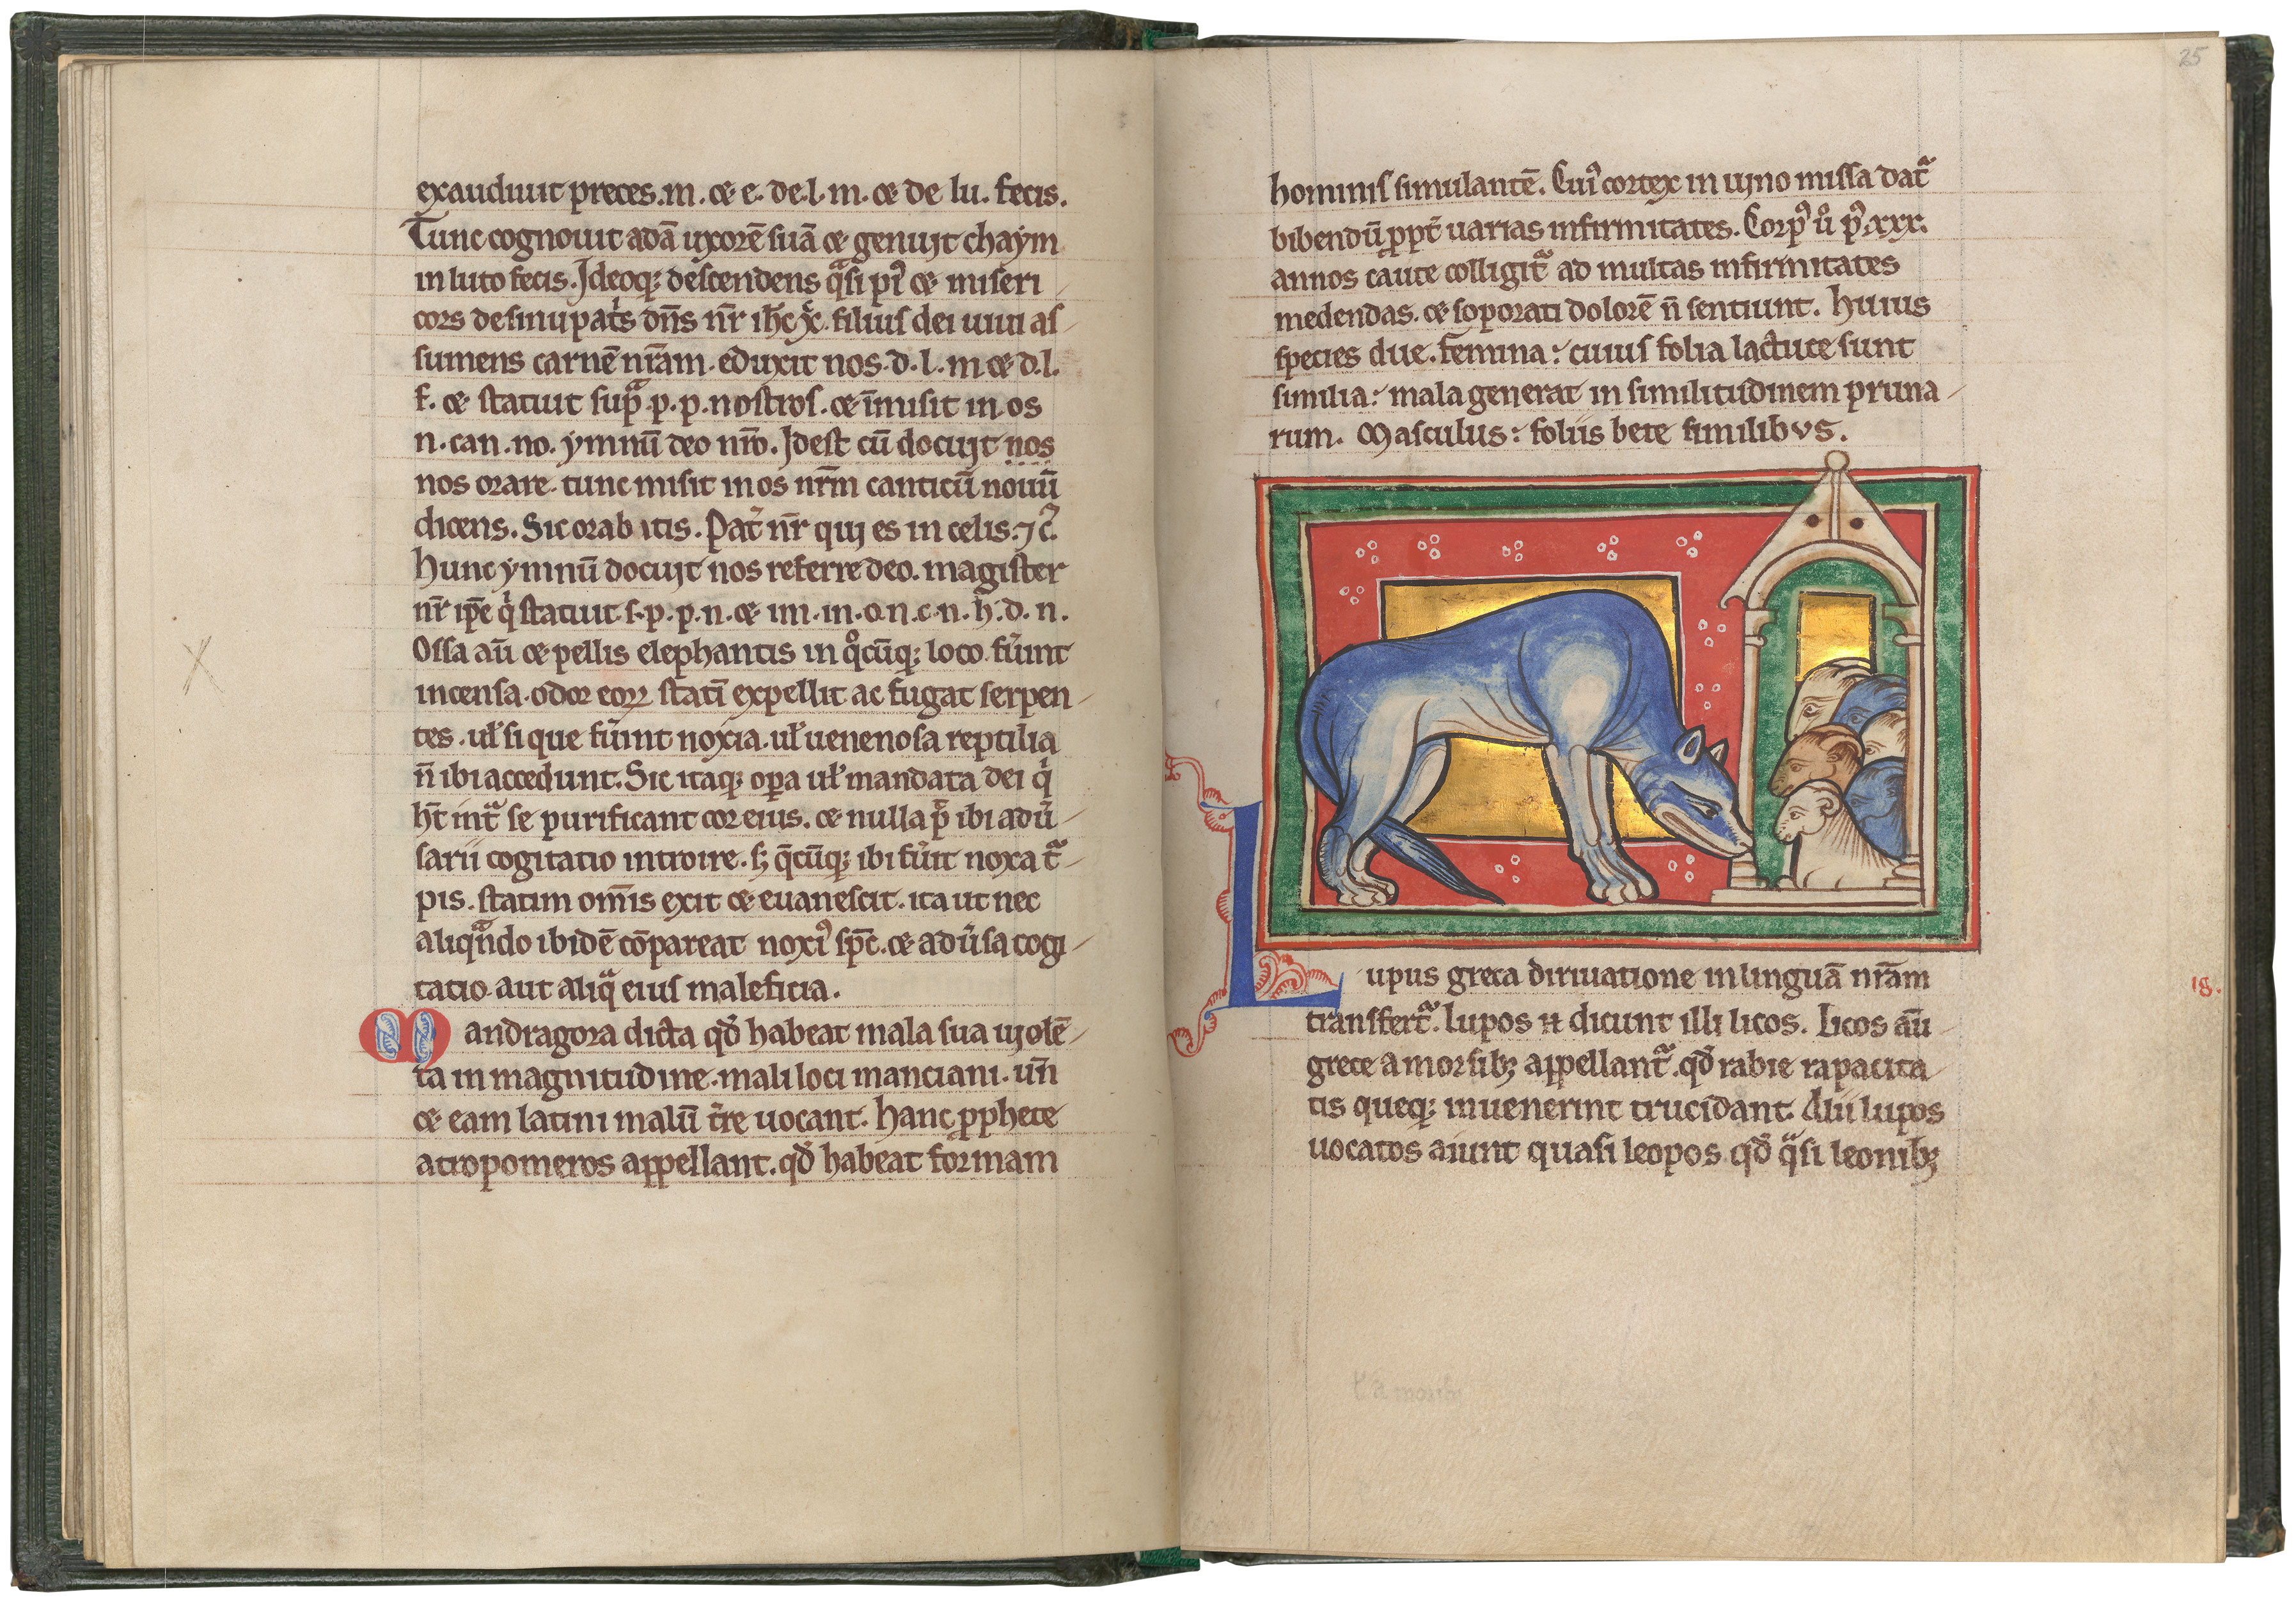 exaudiuit preces. m. ⁊ e. de. l. m. ⁊ de lu. fecis.
Tunc cognouit adā uxorē suā ⁊ genuit chaẏm
in luto fecis. Ideoq; descendens q̃si pi᷒ ⁊ miseri
cors de sinu pat̓s dn̄s nr̄ ih̄c xp̄c filius dei uiui as
sumens carnē nr̄am. eduxit nos. d. l. m ⁊ d. l.
f. ⁊ statuit sup̃ p. p. nostros. ⁊ īmisit in os
n. can. no. ẏmnū deo nr̄o. Idest cū docuit nos
nos orare. tunc misit in os nr̄m canticū nouū
dicens. Sic orabitis. Pat̄ nr̄ qui es in celis. ⁊ c̄.
Hunc ẏmnū docuit nos referre deo. magister
nr̄ ip̄e q̇ statuit s. p. p. n. ⁊ im. in. o. n. c. n. h. d. n.
Ossa aū ⁊ pellis elephantis in q̊cūq; loco fu̓int
incensa. odor eoꝝ statī expellit ac fugat serpen
tes. ul̄ si que fu̓int noxia. ul̄ uenenosa reptilia
n̄ ibi accedunt. Sic itaq; oꝑa ul̄ mandata dei q̇
hn̄t int̃ se purificant cor eius. ⁊ nulla p̄t ibi adu̓
sarii cogitatio introire. sꝫ q̄cūq; ibi fu̓it noxa t̃
pis. statim om̄is exit ⁊ euanescit. ita ut nec
aliqñdo ibidē cōpareat noxi᷒ sp̄c. ⁊ adu̓sa cogi
tatio aut aliq̃ eius maleficia.
Mandragora dicta qđ habeat mala sua uiolē
ta in magnitudine mali loci manciani. un̄
⁊ eam latini malū t̄re uocant. Hanc ꝓphete
atropomeros appellant. qđ habeat formam
25
hominis simulantē. Cui᷒ cortex in uino missa dat̃
bibendū ꝓpt̄ uarias infirmitates. Corp᷒ ů p᷒ .xxx.
annos caute colligit̃ ad multas infirmitates
medendas. ⁊ soporati dolorē n̄ sentiunt. Huius
species due. Femina: cuius folia lactuce sunt
similia: mala generat in similitudinem pruna
rum. Masculus: foliis bete similibus.
Lupus greca diriuatione in linguā nr̄am
transfert̃. lupos n̄ dicunt illi licos. Licos aū
grece a morsibꝫ appellant̃. qđ rabie rapacita
tis queq; inuenerint trucidant. Alii lupos
uocatos aiunt quasi leopos. qđ q̃si leonibꝫ